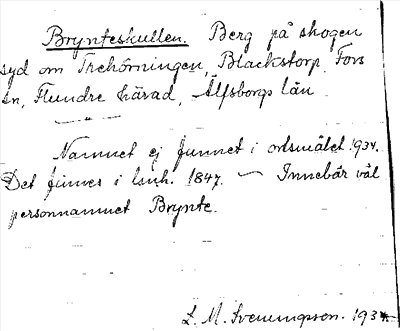 Brynteskullen. Berg på skogen
syd om Trehörningen, Blackstorp Fors
sn, Flundre härad, Älfsborgs län
Namnet ej funnet i ortsmålet 1934.
Det finnes i lsnh. 1847. — Innebär väl
personnamnet Brynte.
L. M. Svenungsson. 1934